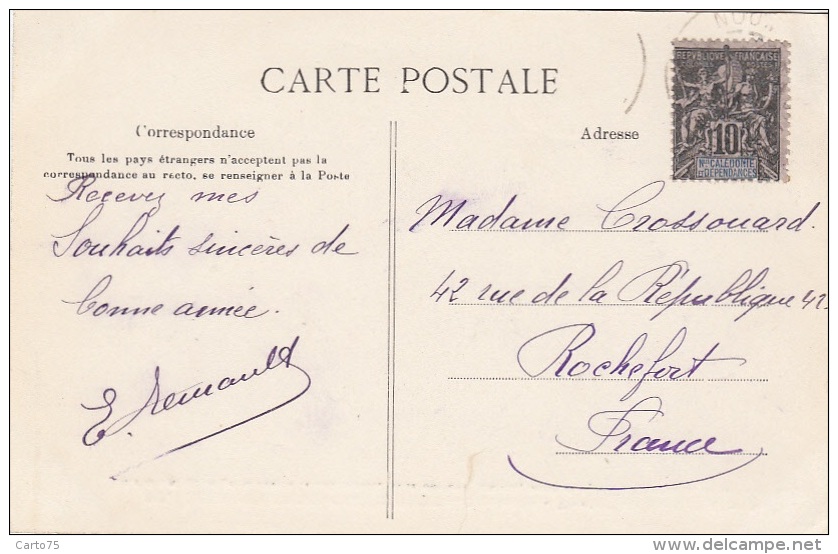 NOU
REPUBLIQUE FRANCAISE
10
Nlle CALEDONIE
ET DEPENDANCES
CARTE POSTALE
Correspondance
Tous les pays étrangers n'acceptent pas la
correspondance au recto, se renseigner à la Poste
Recevez mes
Souhaits sincères de
bonne année.
Adresse
Madame Crossouard.
42 rue de la République 42
Rochefort
France
Carto75
delcampe.net